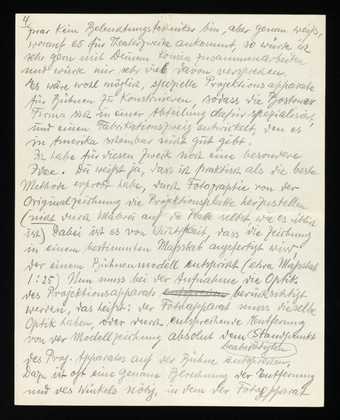 4
zwar kein Beleuchtungstechniker bin, aber genau weiß,
worauf es für Theaterzwecke ankommt, so würde ich
sehr gern mit Deinem zusammenarbeiten
und würde mir sehr viel davon versprechen.
Es wäre wohl möglich, spezielle Projektionsapparate
für Bühnen zu konstruieren, sodass die Bostoner
Firma sich in einer Abteilung dafür spezialisiert
und einen Fabrikationszweig entwickelt, den es
in Amerika scheinbar nicht gut gibt.
Ich habe für diesen Zweck noch eine besondere
Idee. Du weißt ja, dass ich praktisch als die beste
Methode erprobt habe, durch Fotographie von der
Originalzeichnung die Projektionsplatte herzustellen
(nicht durch Malerei auf die Platte selbst wie es üblich
ist) Dabei ist es von Wichtigkeit, dass die Zeichnung
in einem bestimmten Maßstab angefertigt wird,
der einem Bühnenmodell entspricht (etwa Maßstab
1:25) Nun muss bei der Aufnahme die Optik
des Projektionsapparats berücksichtigt
werden, das heißt: der Fotoapparat muss dieselbe
Optik haben, oder durch entsprechende Entfernung
von der Modellzeichnung absolut dem Standpunkt
des Proj. Apparates auf der Bühne entsprechen.
Dazu ist oft eine genaue Berechnung der Entfernung
und des Winkels nötig, in dem der Fotoapparat